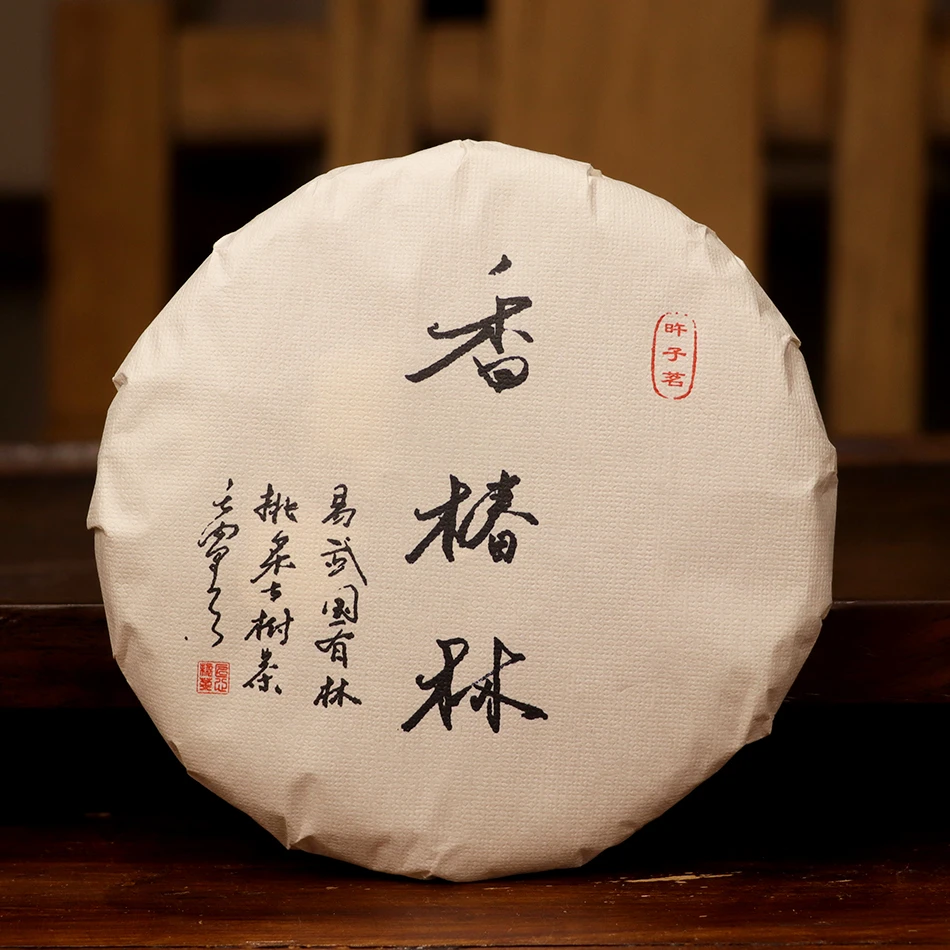 香椿林
昈子茗
易武国有林
挑采古树茶